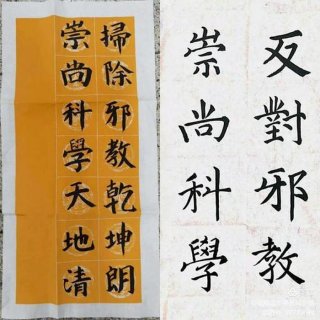 掃除邪教乾坤朗
崇尚科學天地清
反對邪教
崇尚科學